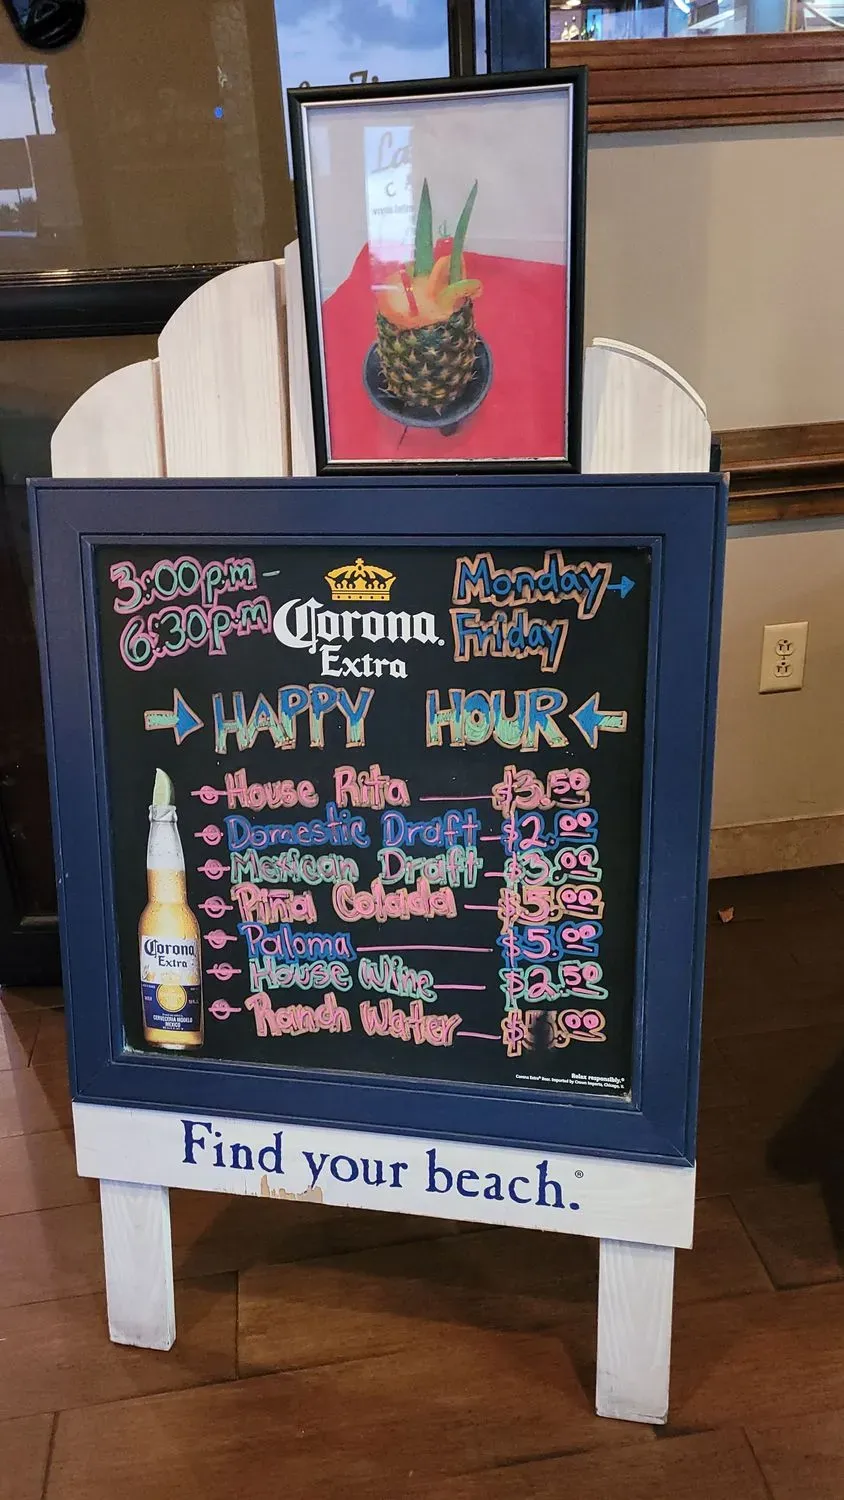 3:00pm-
6:30pm
Corona.
Extra
Monday →
Friday
→ HAPPY HOUR ←
House Rita $3.50
Domestic Draft $2.00
Mexican Draft $3.00
Piña Colada $5.00
Paloma $5.00
House Wine $2.50
Ranch Water
Corona
Extra
Relax responsibly.®
Corona Extra® Beer. Imported by Crown Imports, Chicago, IL
Find your beach.®